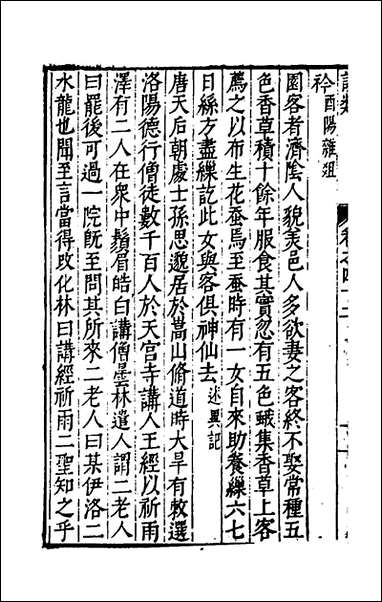 衿酉陽雜俎
園客者濟陰人貌美邑人多欲妻之客終不娶常種五
色香草積十餘年服食其實忽有五色蛾集香草上客
薦之以布生花蚕焉至蚕時有一女自來助養繅六七
日絲方盡繅訖此女與客俱神仙去述異記
唐天后朝處士孫思邈居於嵩山脩道時大旱有敕選
洛陽德行僧徒數千百人於天宮寺講人王經以祈雨
澤有二人在衆中鬚眉皓白講僧曇林遣人謂二老人
曰罷後可過一院旣至問其所來二老人曰某伊洛二
水龍也聞至言當得攺化林曰講經祈雨二聖知之乎